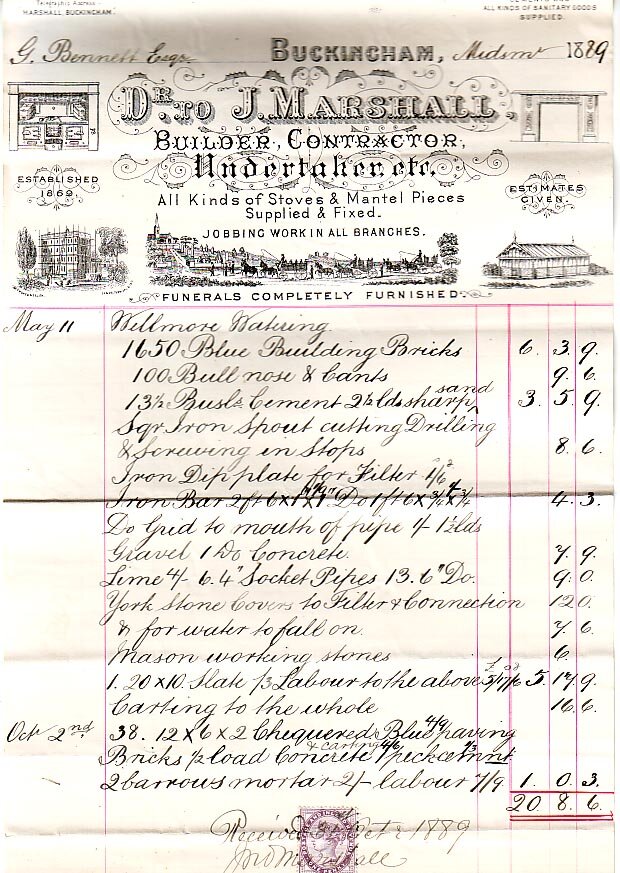 Telegraphic Address
MARSHALL, BUCKINGHAM.
CEMENTS AND
ALL KINDS OF SANITARY GOODS
SUPPLIED.
G. Bennett Esqr BUCKINGHAM, Midsmr 1889
DR. TO J. MARSHALL,
BUILDER, CONTRACTOR,
Undertaker, etc.
ESTABLISHED
1869
ESTIMATES
GIVEN.
All Kinds of Stoves & Mantel Pieces
Supplied & Fixed.
JOBBING WORK IN ALL BRANCHES.
FUNERALS COMPLETELY FURNISHED.
May 11 Wellmore Watering
1650 Blue Building Bricks 6. 3. 9.
100 Bull nose & Cants 9. 6
13½ Bushs Cement 2½ lds sharp sand 3. 5. 9.
Sqr Iron Spout cutting Drilling
& Screwing in Stops 8. 6.
Iron Dip plate for Filter 1/6
Iron Bar 2ft 6 x 1 Do 1ft 6 x ¾ x ¾ 4. 3.
Do Grid to mouth of pipe 4/- 1½ lds
Gravel 1 Do Concrete 7. 9.
Lime 4/- 6. 4" Socket Pipes 13. 6" Do. 9. 0.
York Stone Covers to Filter & Connection 12 0.
& for water to fall on 7. 6.
Mason working stones 6.
1. 20 x 10. Slate /3 Labour to the above 5/17/6 5. 17/9
Carting to the whole 16. 6
Oct 2nd 38. 12 x 6 x 2 Chequered Blue paving 4/9
Bricks ½ load Concrete & carting 4/6 1 peck cemnt /3
2 barrows mortar 2/- labour 7/9 1. 0. 3.
20. 8. 6.
Received Oct 2 1889